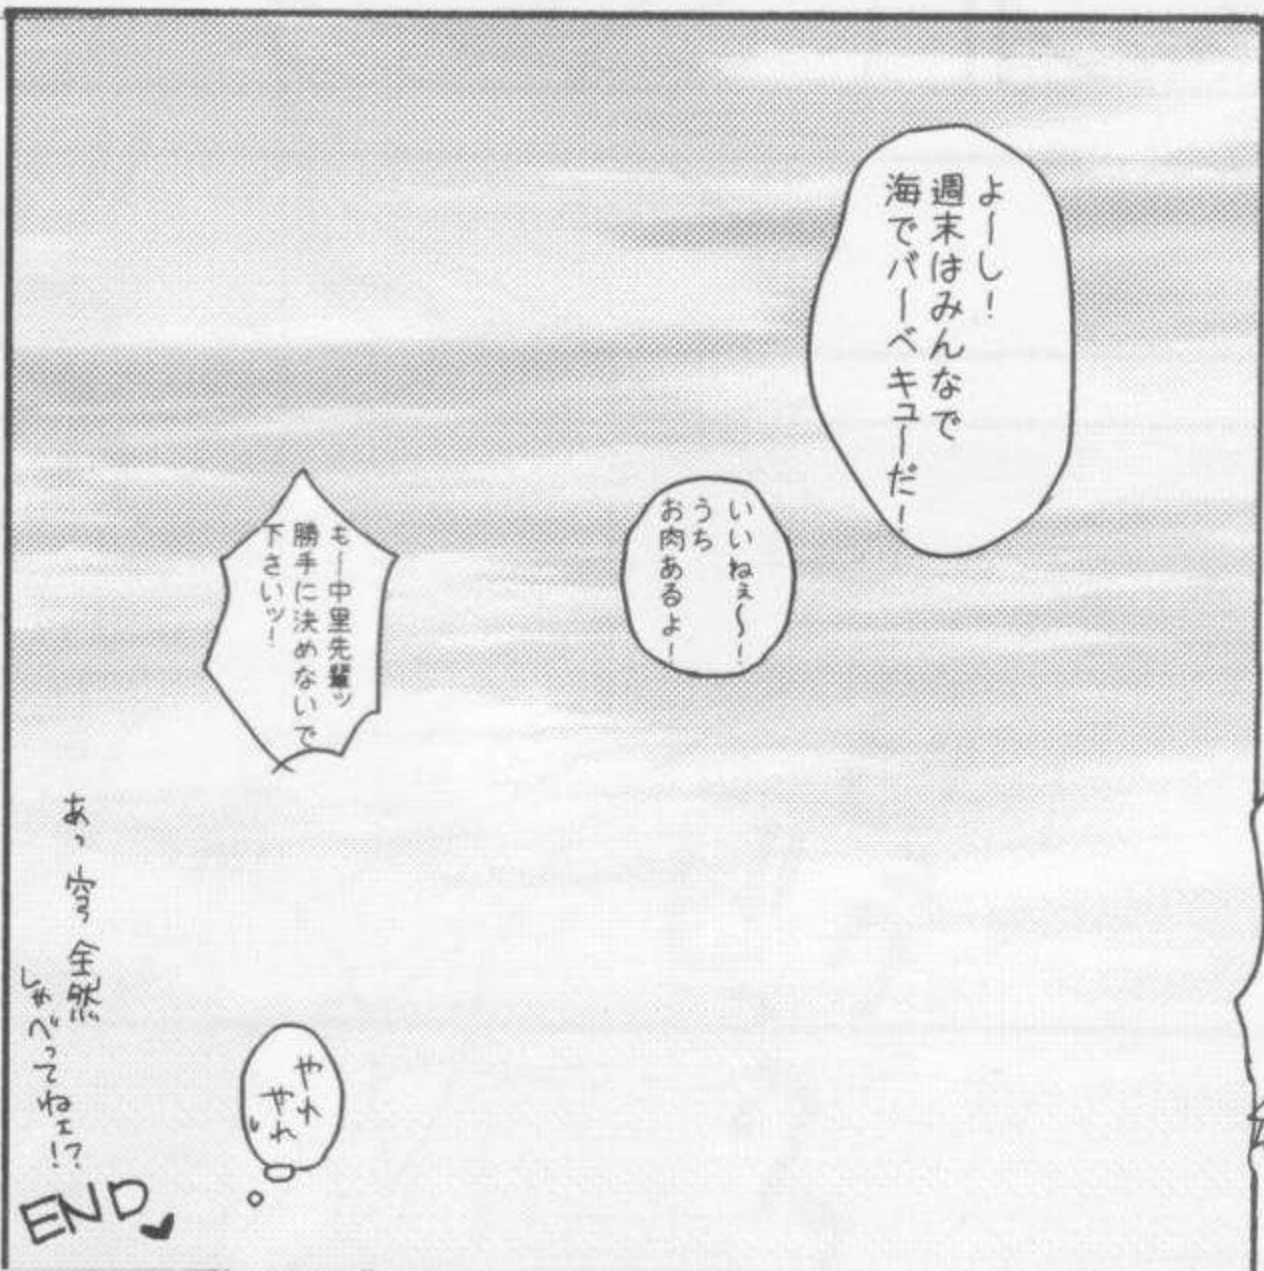 よーし！
週末はみんなで
海でバーベキューだ！
いいねぇ〜！
うち
お肉あるよ！
も〜中里先輩ッ
勝手に決めないで
下さいッ！
やれ
やれ
あっ 全然
しゃべってねェ!?
END